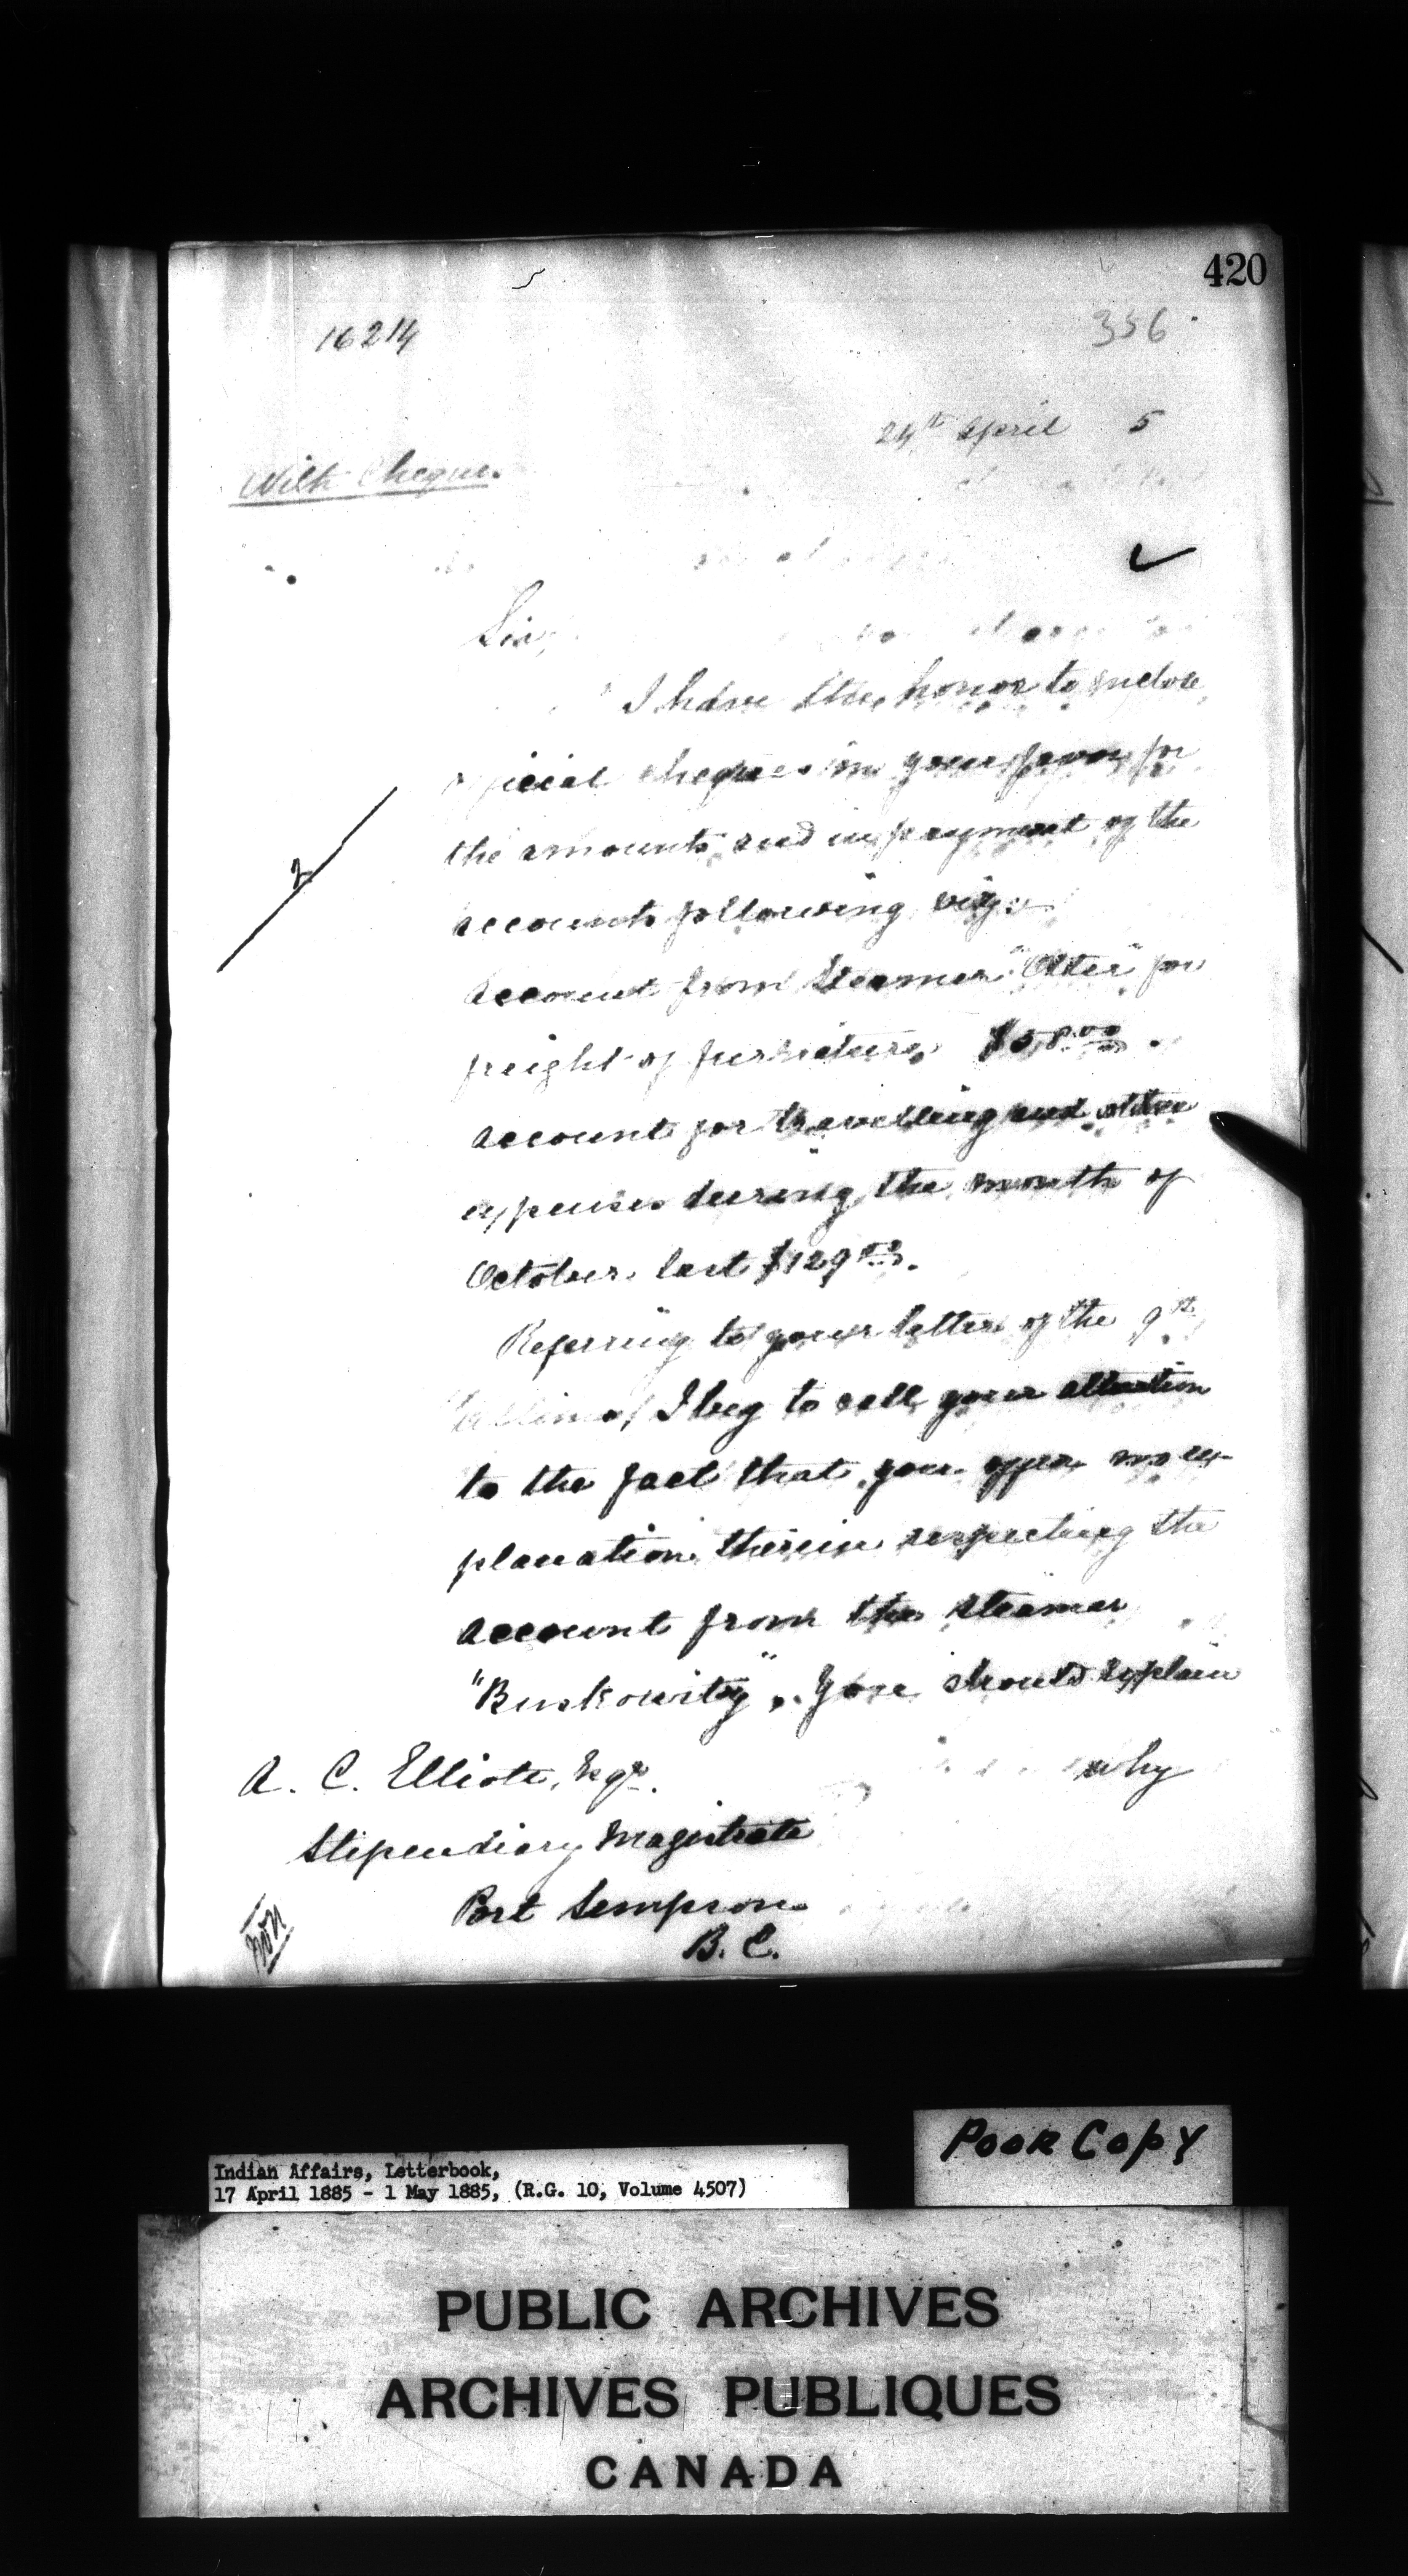 420
16214
356
24th April 5
With Cheque.
Sir,
I have the honor to enclose
official cheques in your favor for
the amounts and in payment of the
accounts following viz:
Account from Steamer "Otter" for
freight of furniture, $58.00.
Account for travelling and other
expenses during the month of
October last $129
Referring to your letter of the 9th
Ultimo, I beg to call your attention
to the fact that you offer no ex-
planation therein respecting the
account from the steamer
"Buskowitz". You should explain
why
A. C. Elliott, Esqr.
Stipendiary Magistrate
Port Sempson
B. C.
2
Poor Copy
Indian Affairs, Letterbook,
17 April 1885 - 1 May 1885, (R.G. 10, Volume 4507)
PUBLIC ARCHIVES
ARCHIVES PUBLIQUES
CANADA